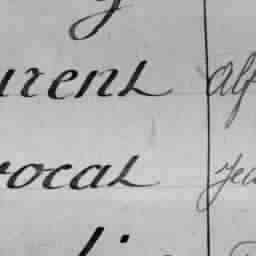 urent Alf
rocat Jea